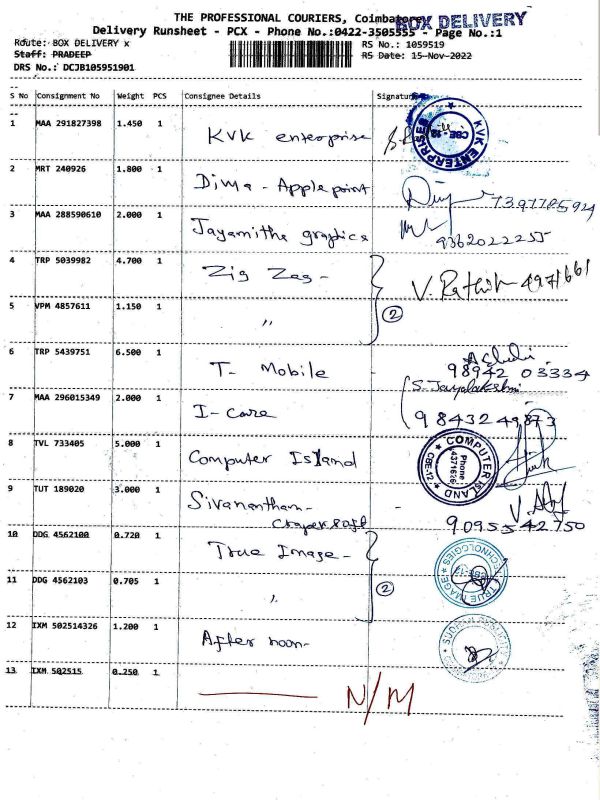 THE PROFESSIONAL COURIERS, Coimbatore
BOX DELIVERY
Delivery Runsheet - PCX - Phone No.:0422-3505555 - Page No.:1
Route: BOX DELIVERY x
RS No.: 1059519
Staff: PRADEEP
RS Date: 15-Nov-2022
DRS No.: DCJB105951901
S No Consignment No Weight PCS Consignee Details Signature
1 MAA 291827398 1.450 1 KVK enterprise
KVK ENTERPRISES CBE - 12
2 MRT 240926 1.800 1 Divya - Applepoint
7397785924
3 MAA 288590610 2.000 1 Jayamitha graphics
9362022255
4 TRP 5039982 4.700 1 Zig Zag - V. Rathish 4971661
5 VPM 4857611 1.150 1 〃 2
6 TRP 5439751 6.500 1 T- Mobile
98942 03334
7 MAA 296015349 2.000 1 I-care S. Jayalakshmi
98432 49873
8 TVL 733405 5.000 1 Computer Island
COMPUTER ISLAND CBE-12 Phone 4371636
9 TUT 189020 3.000 1 Sivanantham-
9095542750
10 DDG 4562100 0.720 1 True Image -
TRUE IMAGE TECHNOLOGIES CBE-12
11 DDG 4562103 0.705 1 〃 2
12 IXM 502514326 1.200 1 After noon-
13 IXM 502515 0.250 1 N/M